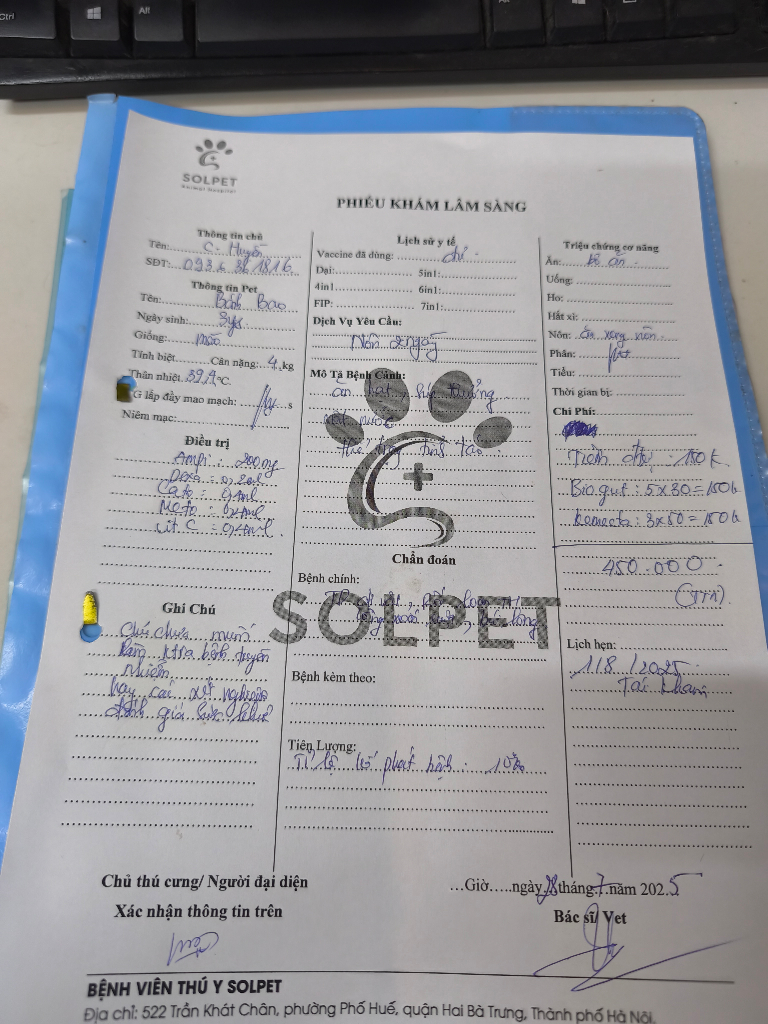 Ctrl
Alt
SOLPET
Animal Hospital
PHIẾU KHÁM LÂM SÀNG
Thông tin chủ
Tên: C. Huyền
SĐT:
Thông tin Pet
Tên: Bánh Bao
Ngày sinh: 3ys
Giống: mèo
Tính biệt Cân nặng: 4 kg
Thân nhiệt 39,4 °C
G lấp đầy mao mạch: s
Niêm mạc:
Điều trị
Ampi: 200mg
Dexa: 0,2ml
Cato: 0,4ml
Meto: 0,4ml
Vit C: 0,4ml
Ghi Chú
Chủ chưa muốn
làm ktra bệnh truyền
nhiễm
hay các xét nghiệm
đánh giá sức khoẻ
Lịch sử y tế
Vaccine đã dùng:
Dại: 5in1:
4in1 6in1:
FIP: 7in1:
Dịch Vụ Yêu Cầu:
Nôn 2 ngày
Mô Tả Bệnh Cảnh:
Ăn hạt,
mất nước
thể trạng tỉnh táo
SOLPET
Chẩn đoán
Bệnh chính:
Bệnh kèm theo:
Tiên Lượng:
Tỉ lệ phát bệnh: 10%
Triệu chứng cơ năng
Ăn: bỏ ăn
Uống:
Ho:
Hắt xì:
Nôn: ăn xong nôn
Phân:
Tiểu:
Thời gian bị:
Chi Phí:
Tiêm đtrị: 150k
Biogut: 5x30=150k
3x50=150k
450.000
Lịch hẹn:
1/8/2025
Tái khám
Chủ thú cưng/ Người đại diện
Xác nhận thông tin trên
…Giờ…..ngày 28 tháng 7 năm 2025
Bác sĩ/ Vet
BỆNH VIỆN THÚ Y SOLPET
Địa chỉ: 522 Trần Khát Chân, phường Phố Huế, quận Hai Bà Trưng, Thành phố Hà Nội.